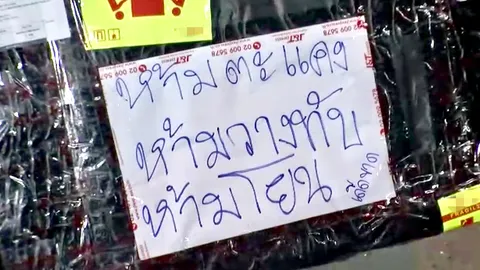 ห้ามตะแคง
ห้ามวางทับ
ห้ามโยน
J&T 02 009 5678
FRAGILE